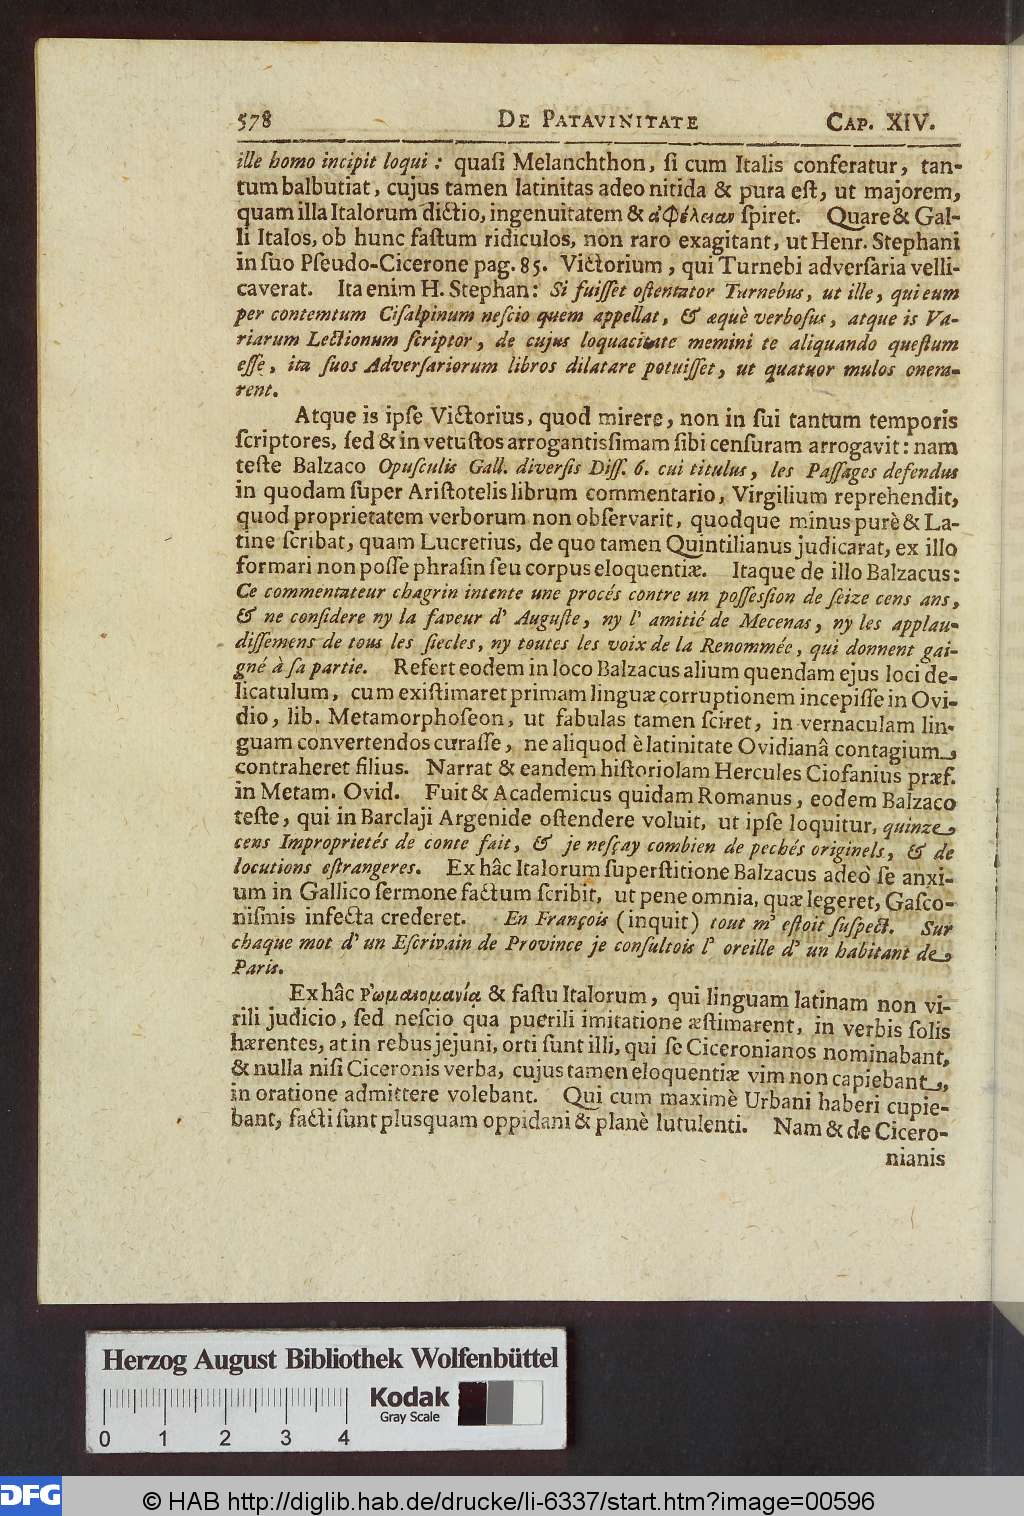 578 DE PATAVINITATE CAP. XIV.
ille homo incipit loqui : quaſi Melanchthon, ſi cum Italis conferatur, tan-
tum balbutiat, cujus tamen latinitas adeo nitida & pura eſt, ut majorem,
quam illa Italorum dictio, ingenuitatem & ἀφέλειαν ſpiret. Quare & Gal-
li Italos, ob hunc faſtum ridiculos, non raro exagitant, ut Henr. Stephani
in ſuo Pſeudo-Cicerone pag. 85. Victorium, qui Turnebi adverſaria velli-
caverat. Ita enim H. Stephan: Si fuiſſet oſtentator Turnebus, ut ille, qui eum
per contemtum Ciſalpinum neſcio quem appellat, & æquè verboſus, atque is Va-
riarum Lectionum ſcriptor, de cujus loquacitate memini te aliquando queſtum
eſſe, ita ſuos Adverſariorum libros dilatare potuiſſet, ut quatuor mulos onera-
rent.
Atque is ipſe Victorius, quod mirere, non in ſui tantum temporis
ſcriptores, ſed & in vetuſtos arrogantisſimam ſibi cenſuram arrogavit: nam
teſte Balzaco Opuſculis Gall. diverſis Diſſ. 6. cui titulus, les Paſſages defendus
in quodam ſuper Ariſtotelis librum commentario, Virgilium reprehendit,
quod proprietatem verborum non obſervarit, quodque minus purè & La-
tine ſcribat, quam Lucretius, de quo tamen Quintilianus judicarat, ex illo
formari non poſſe phraſin ſeu corpus eloquentiæ. Itaque de illo Balzacus:
Ce commentateur chagrin intente une procés contre un poſſeſſion de ſeize cens ans,
& ne conſidere ny la faveur d' Auguſte, ny l' amitié de Mecenas, ny les applau-
diſſemens de tous les ſiecles, ny toutes les voix de la Renommée, qui donnent gai-
gné à ſa partie. Refert eodem in loco Balzacus alium quendam ejus loci de-
licatulum, cum exiſtimaret primam linguæ corruptionem incepiſſe in Ovi-
dio, lib. Metamorphoſeon, ut fabulas tamen ſciret, in vernaculam lin-
guam convertendos curaſſe, ne aliquod è latinitate Ovidianâ contagium,
contraheret filius. Narrat & eandem hiſtoriolam Hercules Ciofanius præf.
in Metam. Ovid. Fuit & Academicus quidam Romanus, eodem Balzaco
teſte, qui in Barclaji Argenide oſtendere voluit, ut ipſe loquitur, quinze
cens Improprietés de conte fait, & je neſçay combien de pechés originels, & de
locutions eſtrangeres. Ex hâc Italorum ſuperſtitione Balzacus adeò ſe anxi-
um in Gallico ſermone factum ſcribit, ut pene omnia, quæ legeret, Gaſco-
niſmis infecta crederet. En François (inquit) tout m' eſtoit ſuſpect. Sur
chaque mot d' un Eſcrivain de Province je conſultois l' oreille d' un habitant de
Paris.
Ex hâc Ρ῾ωμαιομανίᾳ & faſtu Italorum, qui linguam latinam non vi-
rili judicio, ſed neſcio qua puerili imitatione æſtimarent, in verbis ſolis
hærentes, at in rebus jejuni, orti ſunt illi, qui ſe Ciceronianos nominabant,
& nulla niſi Ciceronis verba, cujus tamen eloquentiæ vim non capiebant,
in oratione admittere volebant. Qui cum maximè Urbani haberi cupie-
bant, facti ſunt plusquam oppidani & planè lutulenti. Nam & de Cicero-
nianis
Herzog August Bibliothek Wolfenbüttel
Kodak
Gray Scale
0 1 2 3 4
DFG
© HAB http://diglib.hab.de/drucke/li-6337/start.htm?image=00596